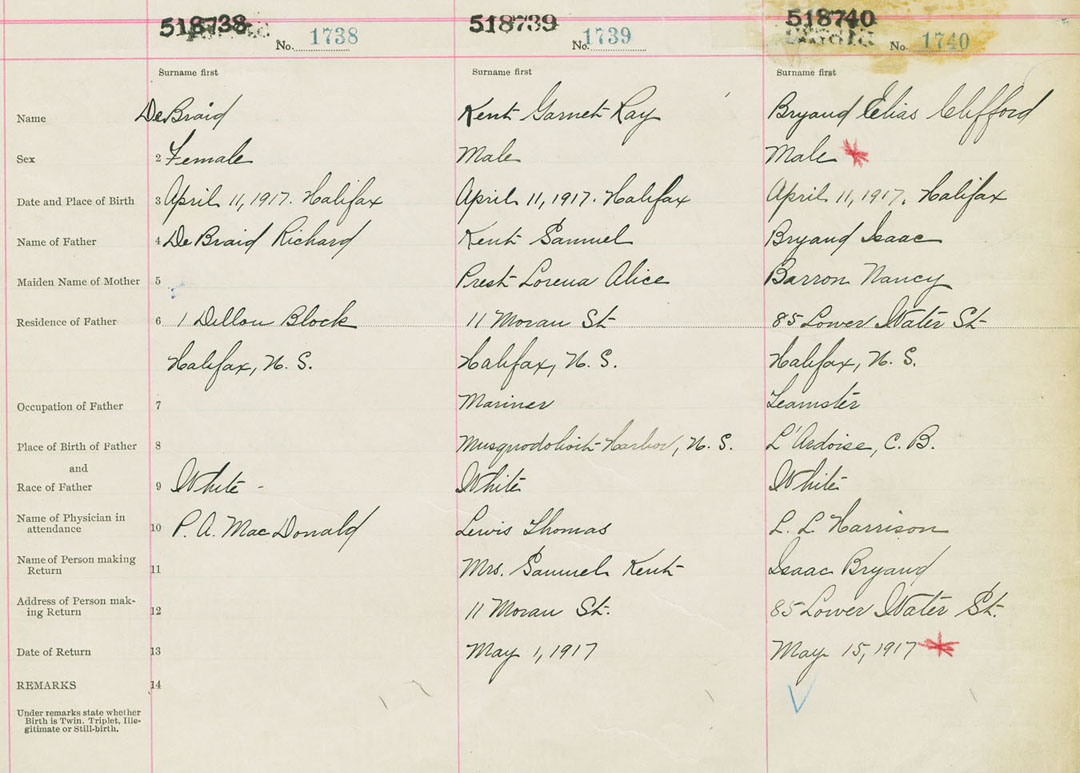 518738 518739 518740
No. 1738 No. 1739 No. 1740
Surname first Surname first Surname first
Name DeBraid Kent Garnet Ray Bryand Elias Clifford
Sex 2 Female Male Male
Date and Place of Birth 3 April 11, 1917. Halifax April 11, 1917. Halifax April 11, 1917. Halifax
Name of Father 4 DeBraid Richard Kent Samuel Bryand Isaac
Maiden Name of Mother 5 Prest Lorena Alice Barron Nancy
Residence of Father 6 1 Dillon Block 11 Moran St. 85 Lower Water St.
Halifax, N. S. Halifax, N. S. Halifax, N. S.
Occupation of Father 7 Mariner Teamster
Place of Birth of Father 8 Musquodoboit Harbor, N. S. L'Ardoise, C. B.
and
Race of Father 9 White White White
Name of Physician in
attendance 10 P. A. MacDonald Lewis Thomas L. L Harrison
Name of Person making
Return 11 Mrs. Samuel Kent Isaac Bryand
Address of Person mak-
ing Return 12 11 Moran St. 85 Lower Water St.
Date of Return 13 May 1, 1917 May 15, 1917
REMARKS 14
Under remarks state whether
Birth is Twin. Triplet, Ille-
gitimate or Still-birth.